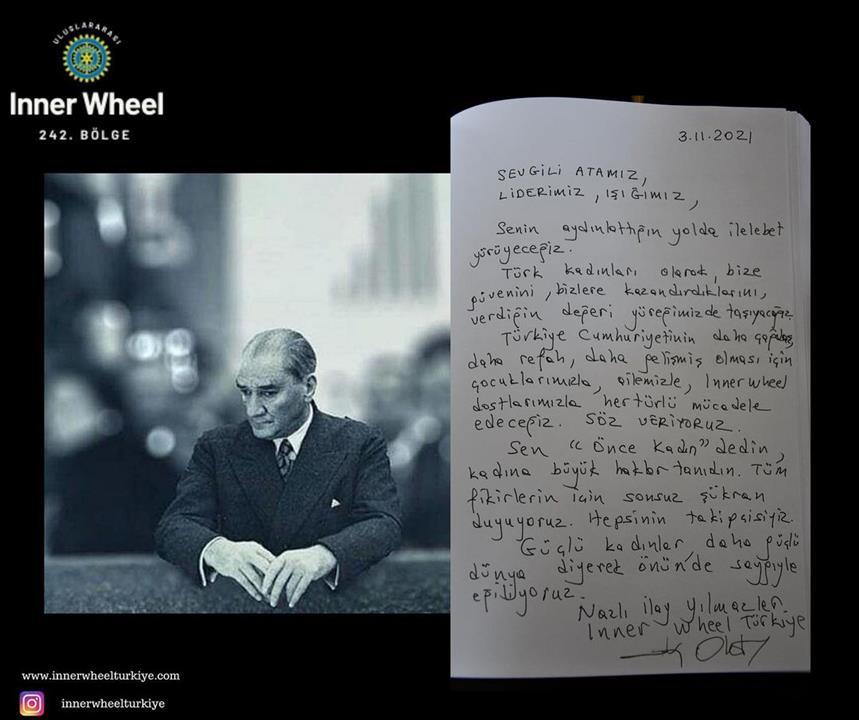 ULUSLARARASI
Inner Wheel
242. BÖLGE
3.11.2021
SEVGİLİ ATAMIZ,
LİDERİMİZ, IŞIĞIMIZ,
Senin aydınlattığın yolda ilelebet
yürüyeceğiz.
Türk kadınları olarak, bize
güvenini, bizlere kazandırdıklarını,
verdiğin değeri yüreğimizde taşıyacağız.
Türkiye Cumhuriyetinin daha çağdaş,
daha refah, daha gelişmiş olması için
çocuklarımızla, ailemizle, Inner wheel
dostlarımızla hertürlü mücadele
edeceğiz. SÖZ VERİYORUZ.
Sen "Önce Kadın" dedin,
kadına büyük haklar tanıdın. Tüm
fikirlerin için sonsuz şükran
duyuyoruz. Hepsinin takipçisiyiz.
Güçlü kadınlar daha güçlü
dünya diyerek önün'de saygıyla
eğiliyoruz.
Nazlı ilay yılmazler
Inner Wheel Türkiye
www.innerwheelturkiye.com
innerwheelturkiye